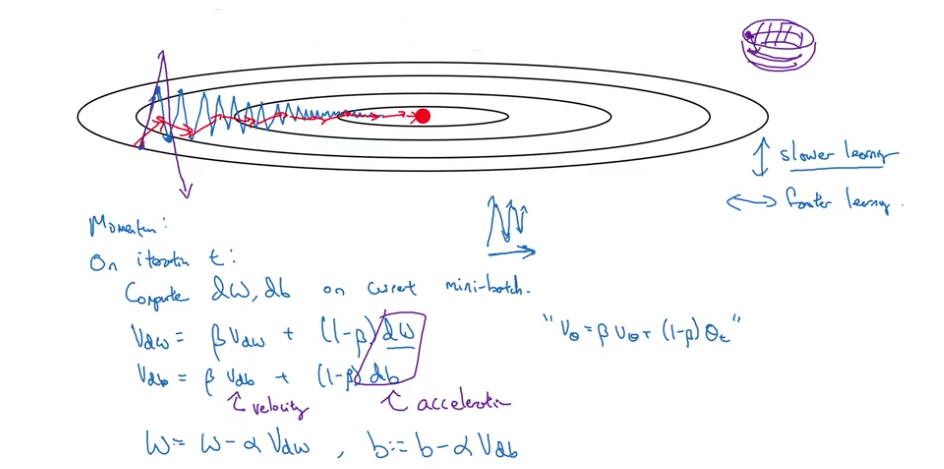 ↕ slower learning
↔ faster learning.
Momentum:
On iteration t:
Compute dW, db on current mini-batch.
Vdw = β Vdw + (1-β) dW
"Vθ = β Vθ + (1-β) θt"
Vdb = β Vdb + (1-β) db
velocity
acceleration
W := W - α Vdw , b := b - α Vdb